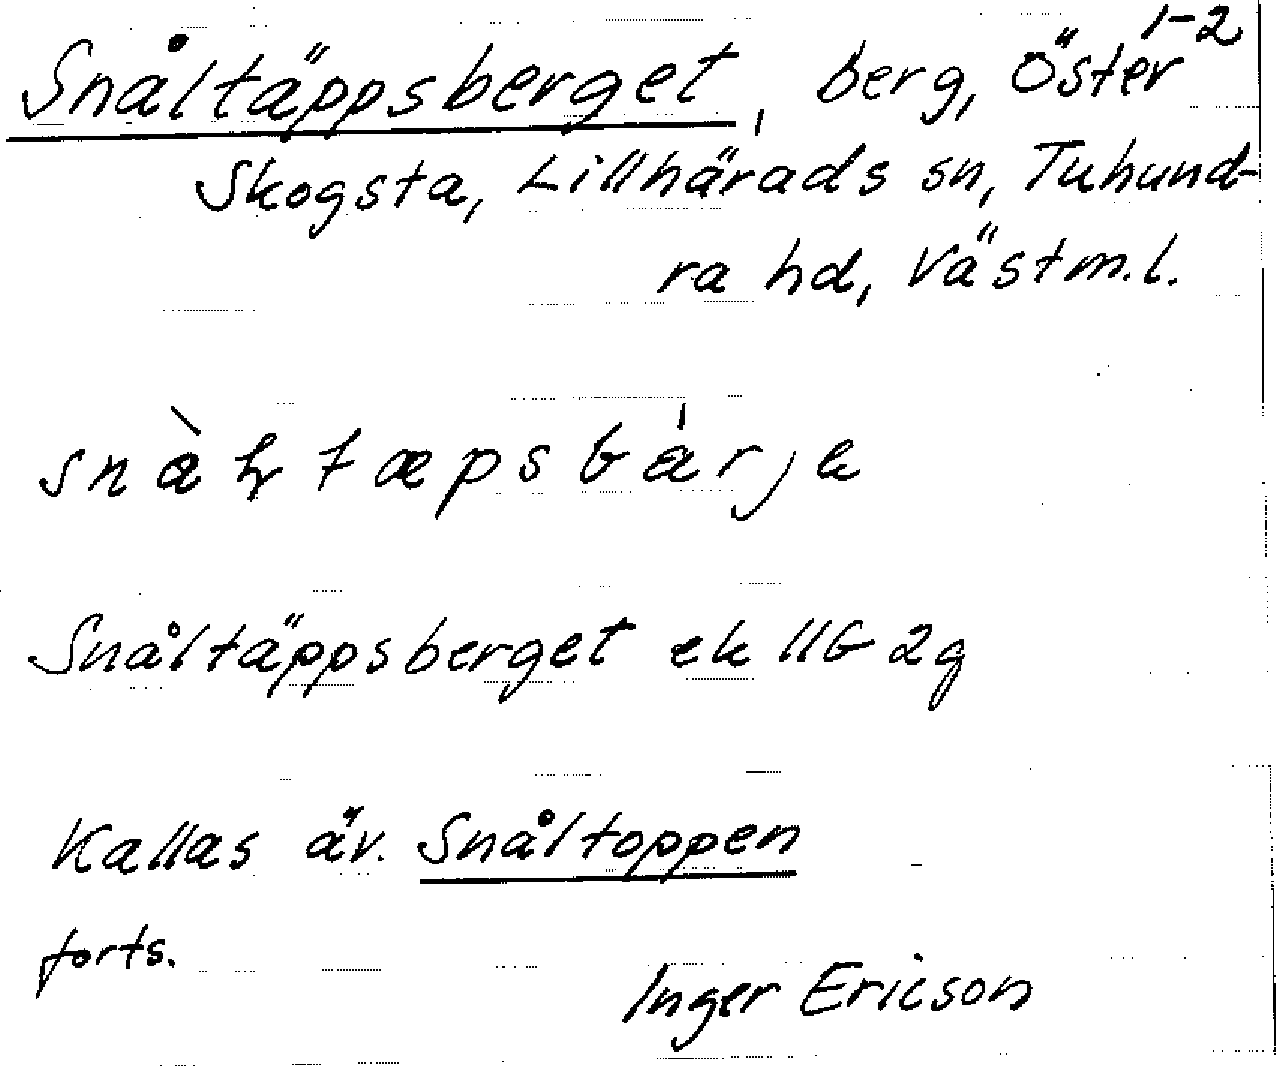 1-2
Snåltäppsberget, berg, Öster
Skogsta, Lillhärads sn, Tuhund-
ra hd, Västm.l.
Snåltäppsberget ek 11G 2g
Kallas äv. Snåltoppen
forts.
Inger Ericson